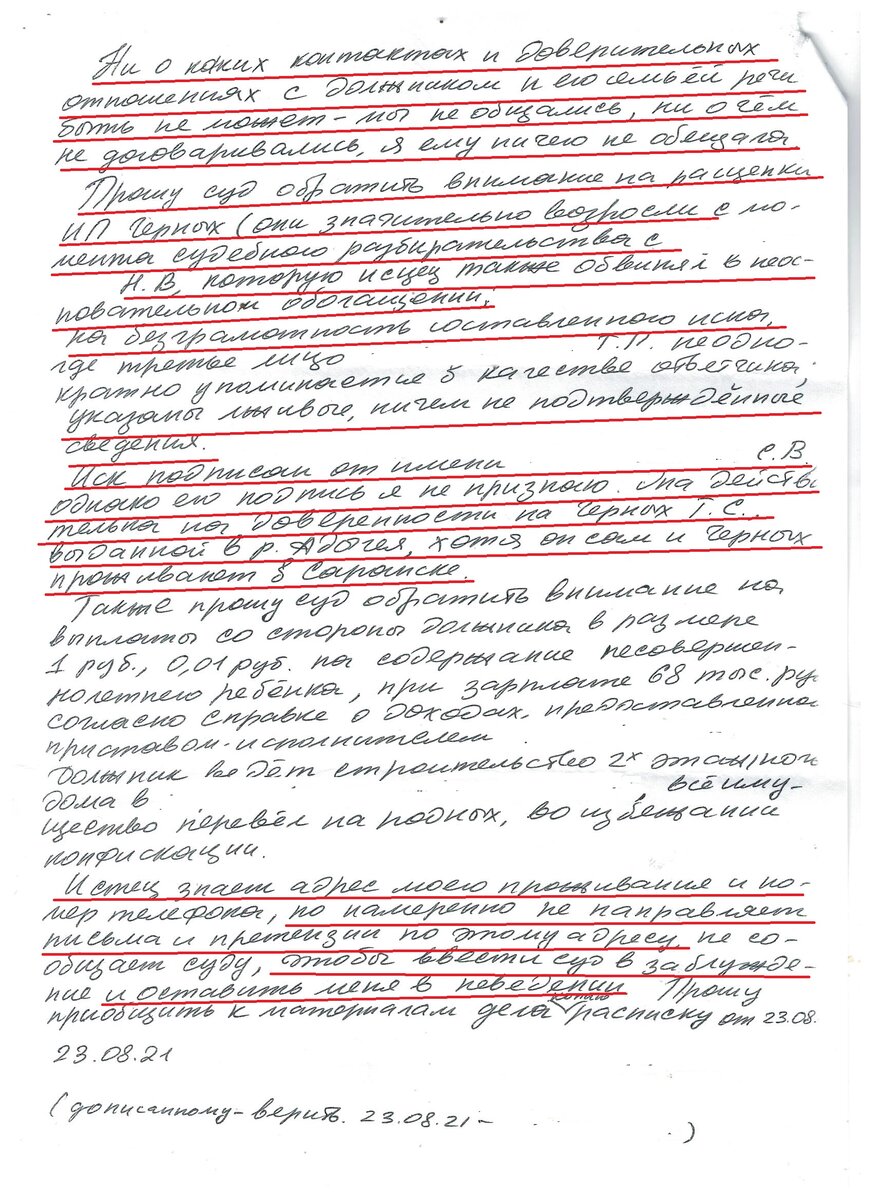 Ни о каких контактах и доверительных
отношениях с должником и его семьёй речи
быть не может - мы не общались, ни о чём
не договаривались, я ему ничего не обещала.
Прошу суд обратить внимание на расценки
ИП Черных (они значительно возросли с мо-
мента судебного разбирательства с
Н.В, которую истец также обвинял в неос-
новательном обогащении;
на безграмотность составленного иска,
где третье лицо Т.П. неодно-
кратно упоминается в качестве ответчика;
указаны лживые, ничем не подтверждённые
сведения.
Иск подписан от имени С.В.
однако его подпись я не признаю. Она действи
тельна на доверенности на Черных Т.С.,
выданной в р. Адыгея, хотя он сам и Черных
проживают в Саранске.
Также прошу суд обратить внимание на
выплаты со стороны должника в размере
1 руб., 0,01 руб. на содержание несовершен-
нолетнего ребёнка, при зарплате 68 тыс. ру
согласно справке о доходах, предоставленно
приставом-исполнителем
Должник ведёт строительство 2х этажног
дома в , всё иму-
щество перевёл на родных, во избежании
конфискации.
Истец знает адрес моего проживания и но-
мер телефона, но намеренно не направляет
письма и претензии по этому адресу, не со-
общает суду, чтобы ввести суд в заблужде-
ние и оставить меня в неведении Прошу
приобщить к материалам дела копию расписку от 23.08.
23.08.21
(дописанному-верить. 23.08.21 - )